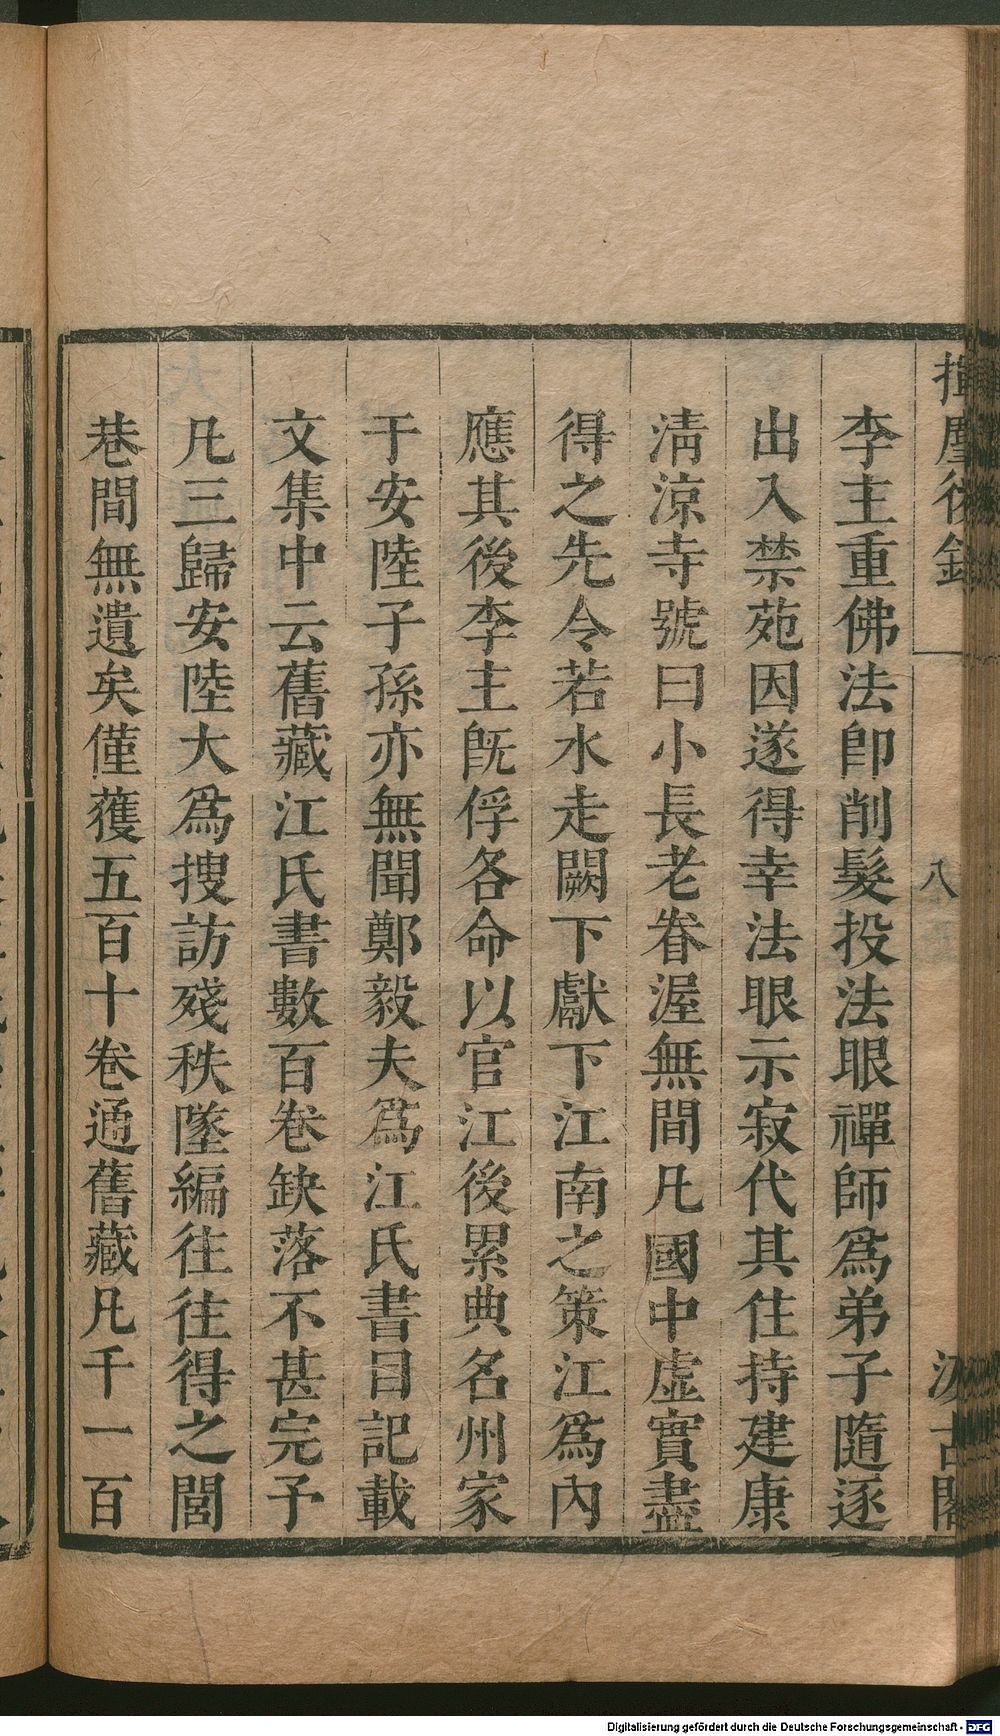 揮麈後錄
八
汲古閣
李主重佛法卽削髮投法眼禪師爲弟子隨逐
出入禁苑因遂得幸法眼示寂代其住持建康
淸涼寺號曰小長老眷渥無間凡國中虛實盡
得之先令若水走闕下獻下江南之策江爲內
應其後李主旣俘各命以官江後累典名州家
于安陸子孫亦無聞鄭毅夫爲江氏書目記載
文集中云舊藏江氏書數百卷缺落不甚完予
凡三歸安陸大爲搜訪殘秩墜編往往得之閭
巷間無遺矣僅獲五百十卷通舊藏凡千一百
Digitalisierung gefördert durch die Deutsche Forschungsgemeinschaft - DFG